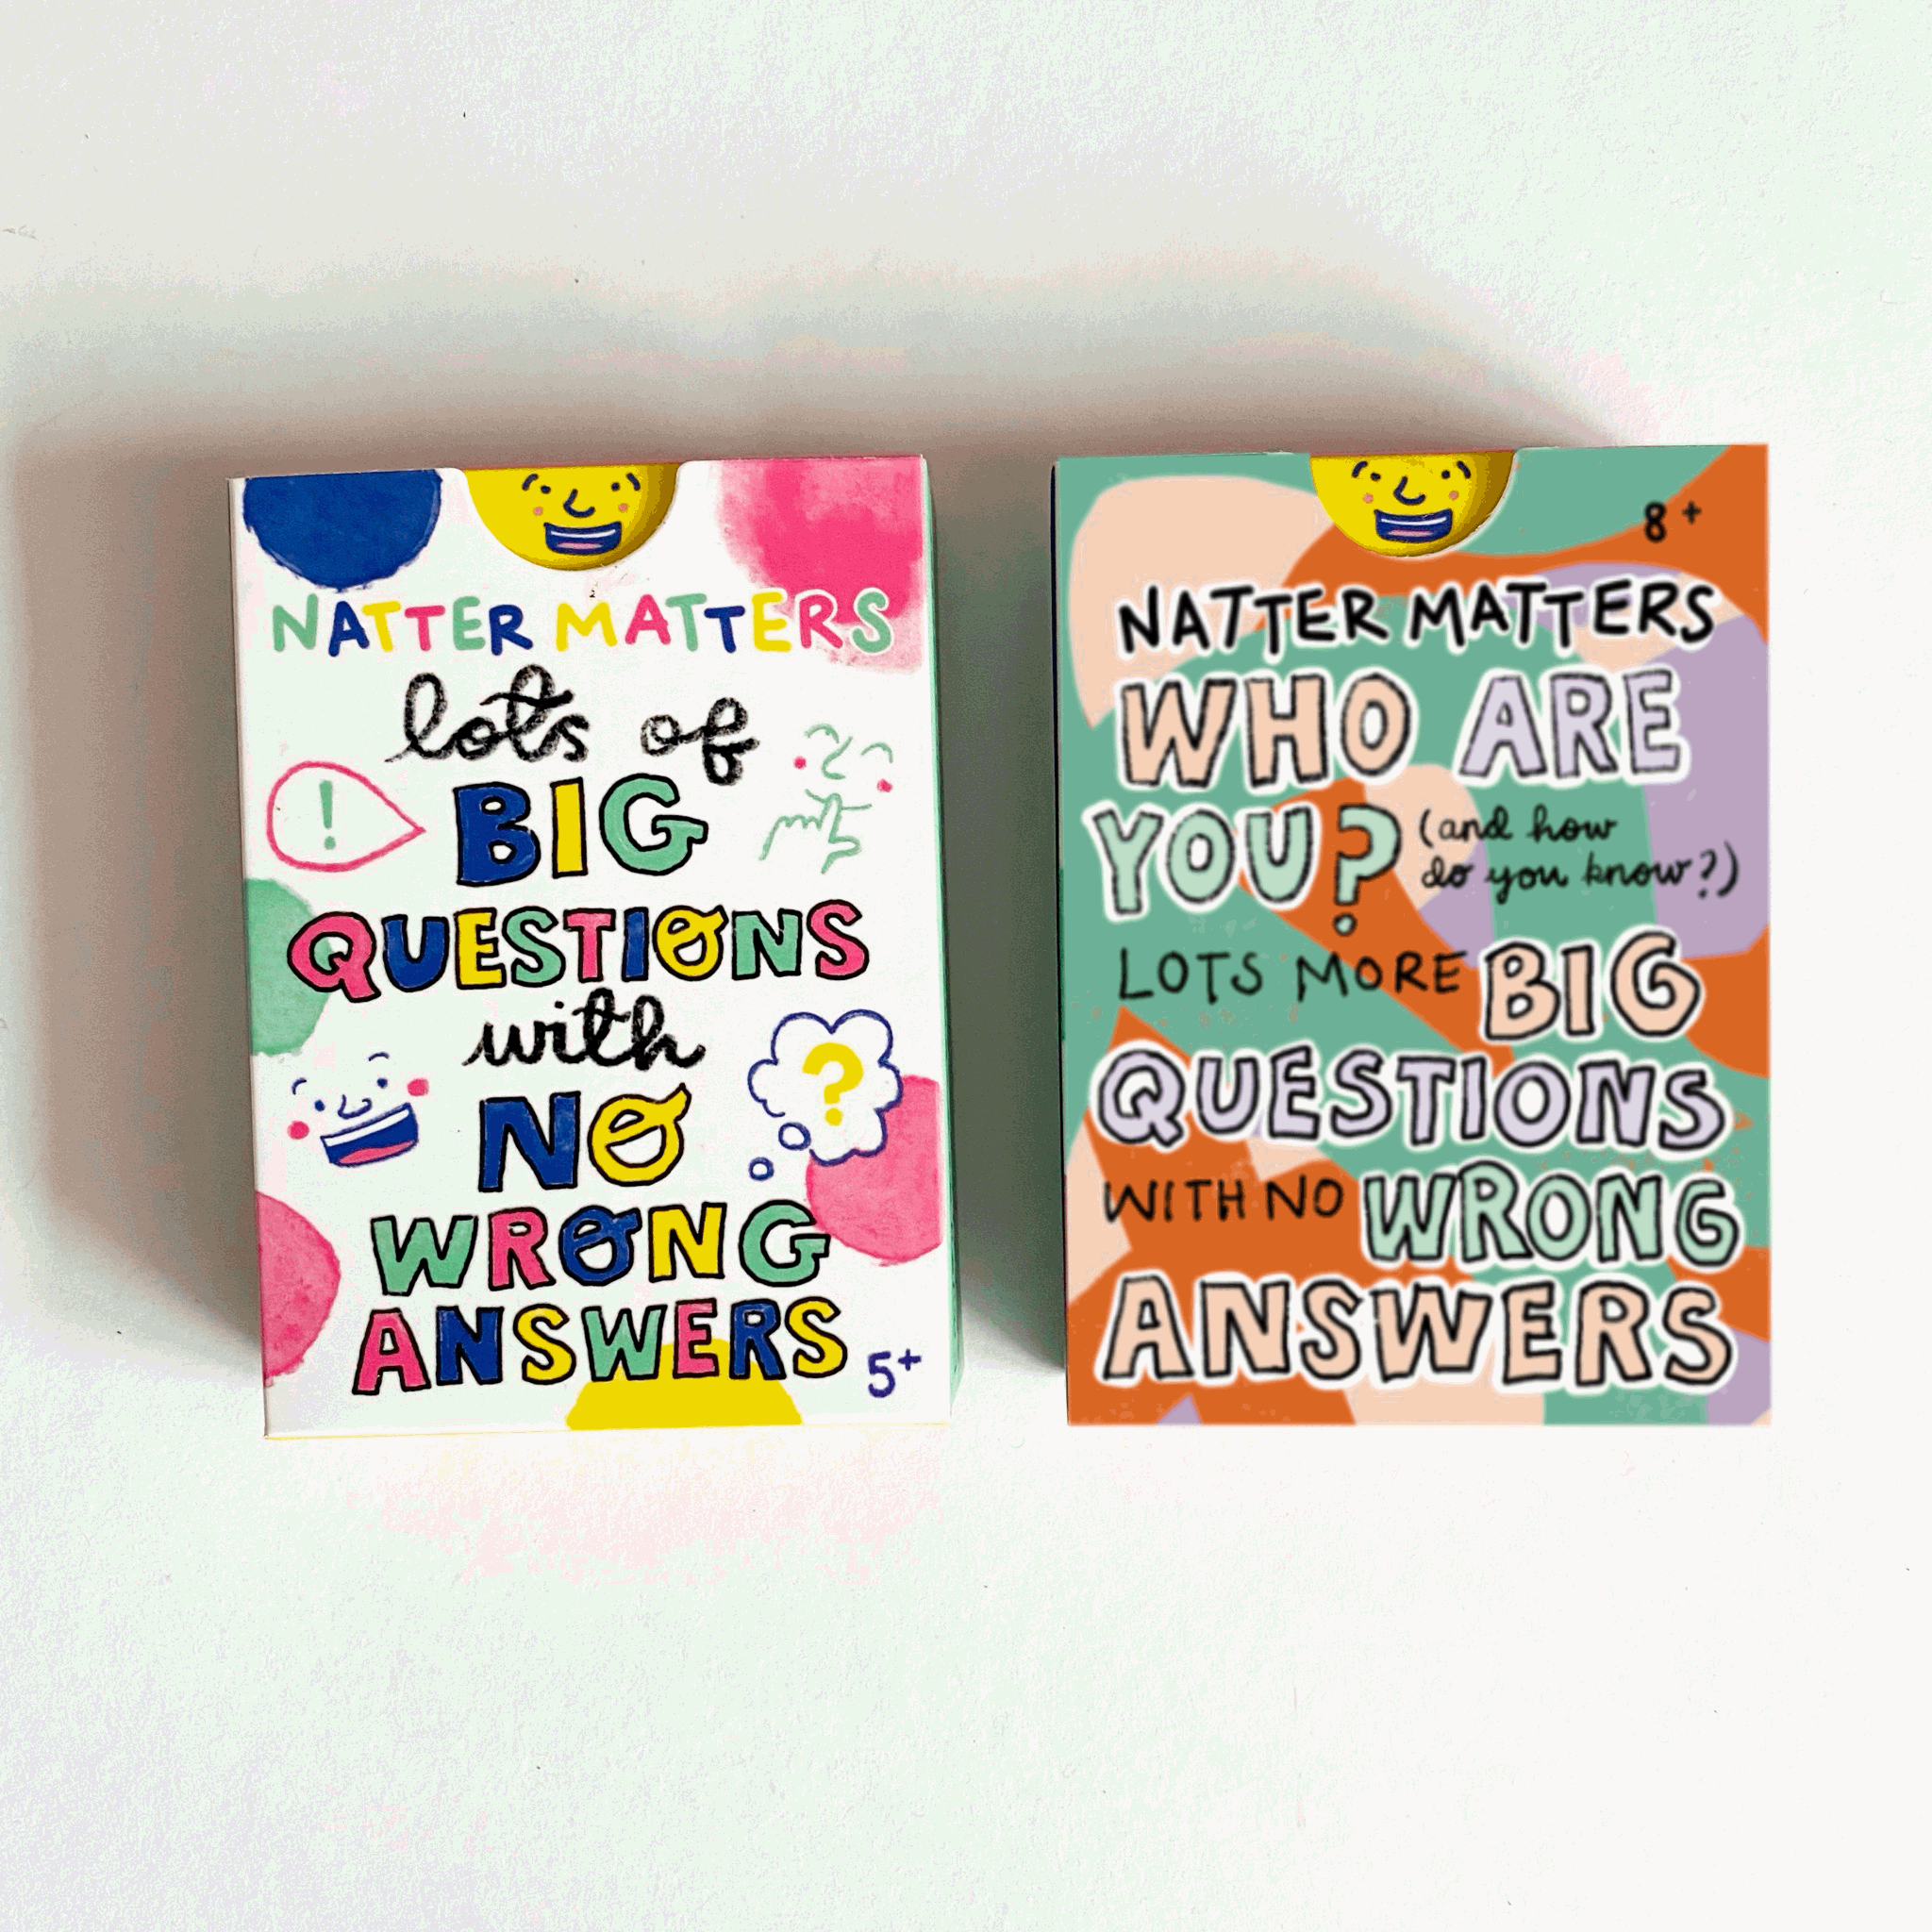 NATTER MATTERS
lots of
!
BIG
QUESTIONS
with
?
NO
WRONG
ANSWERS
5+
8+
NATTER MATTERS
WHO ARE
YOU? (and how
do you know?)
LOTS MORE BIG
QUESTIONS
WITH NO WRONG
ANSWERS